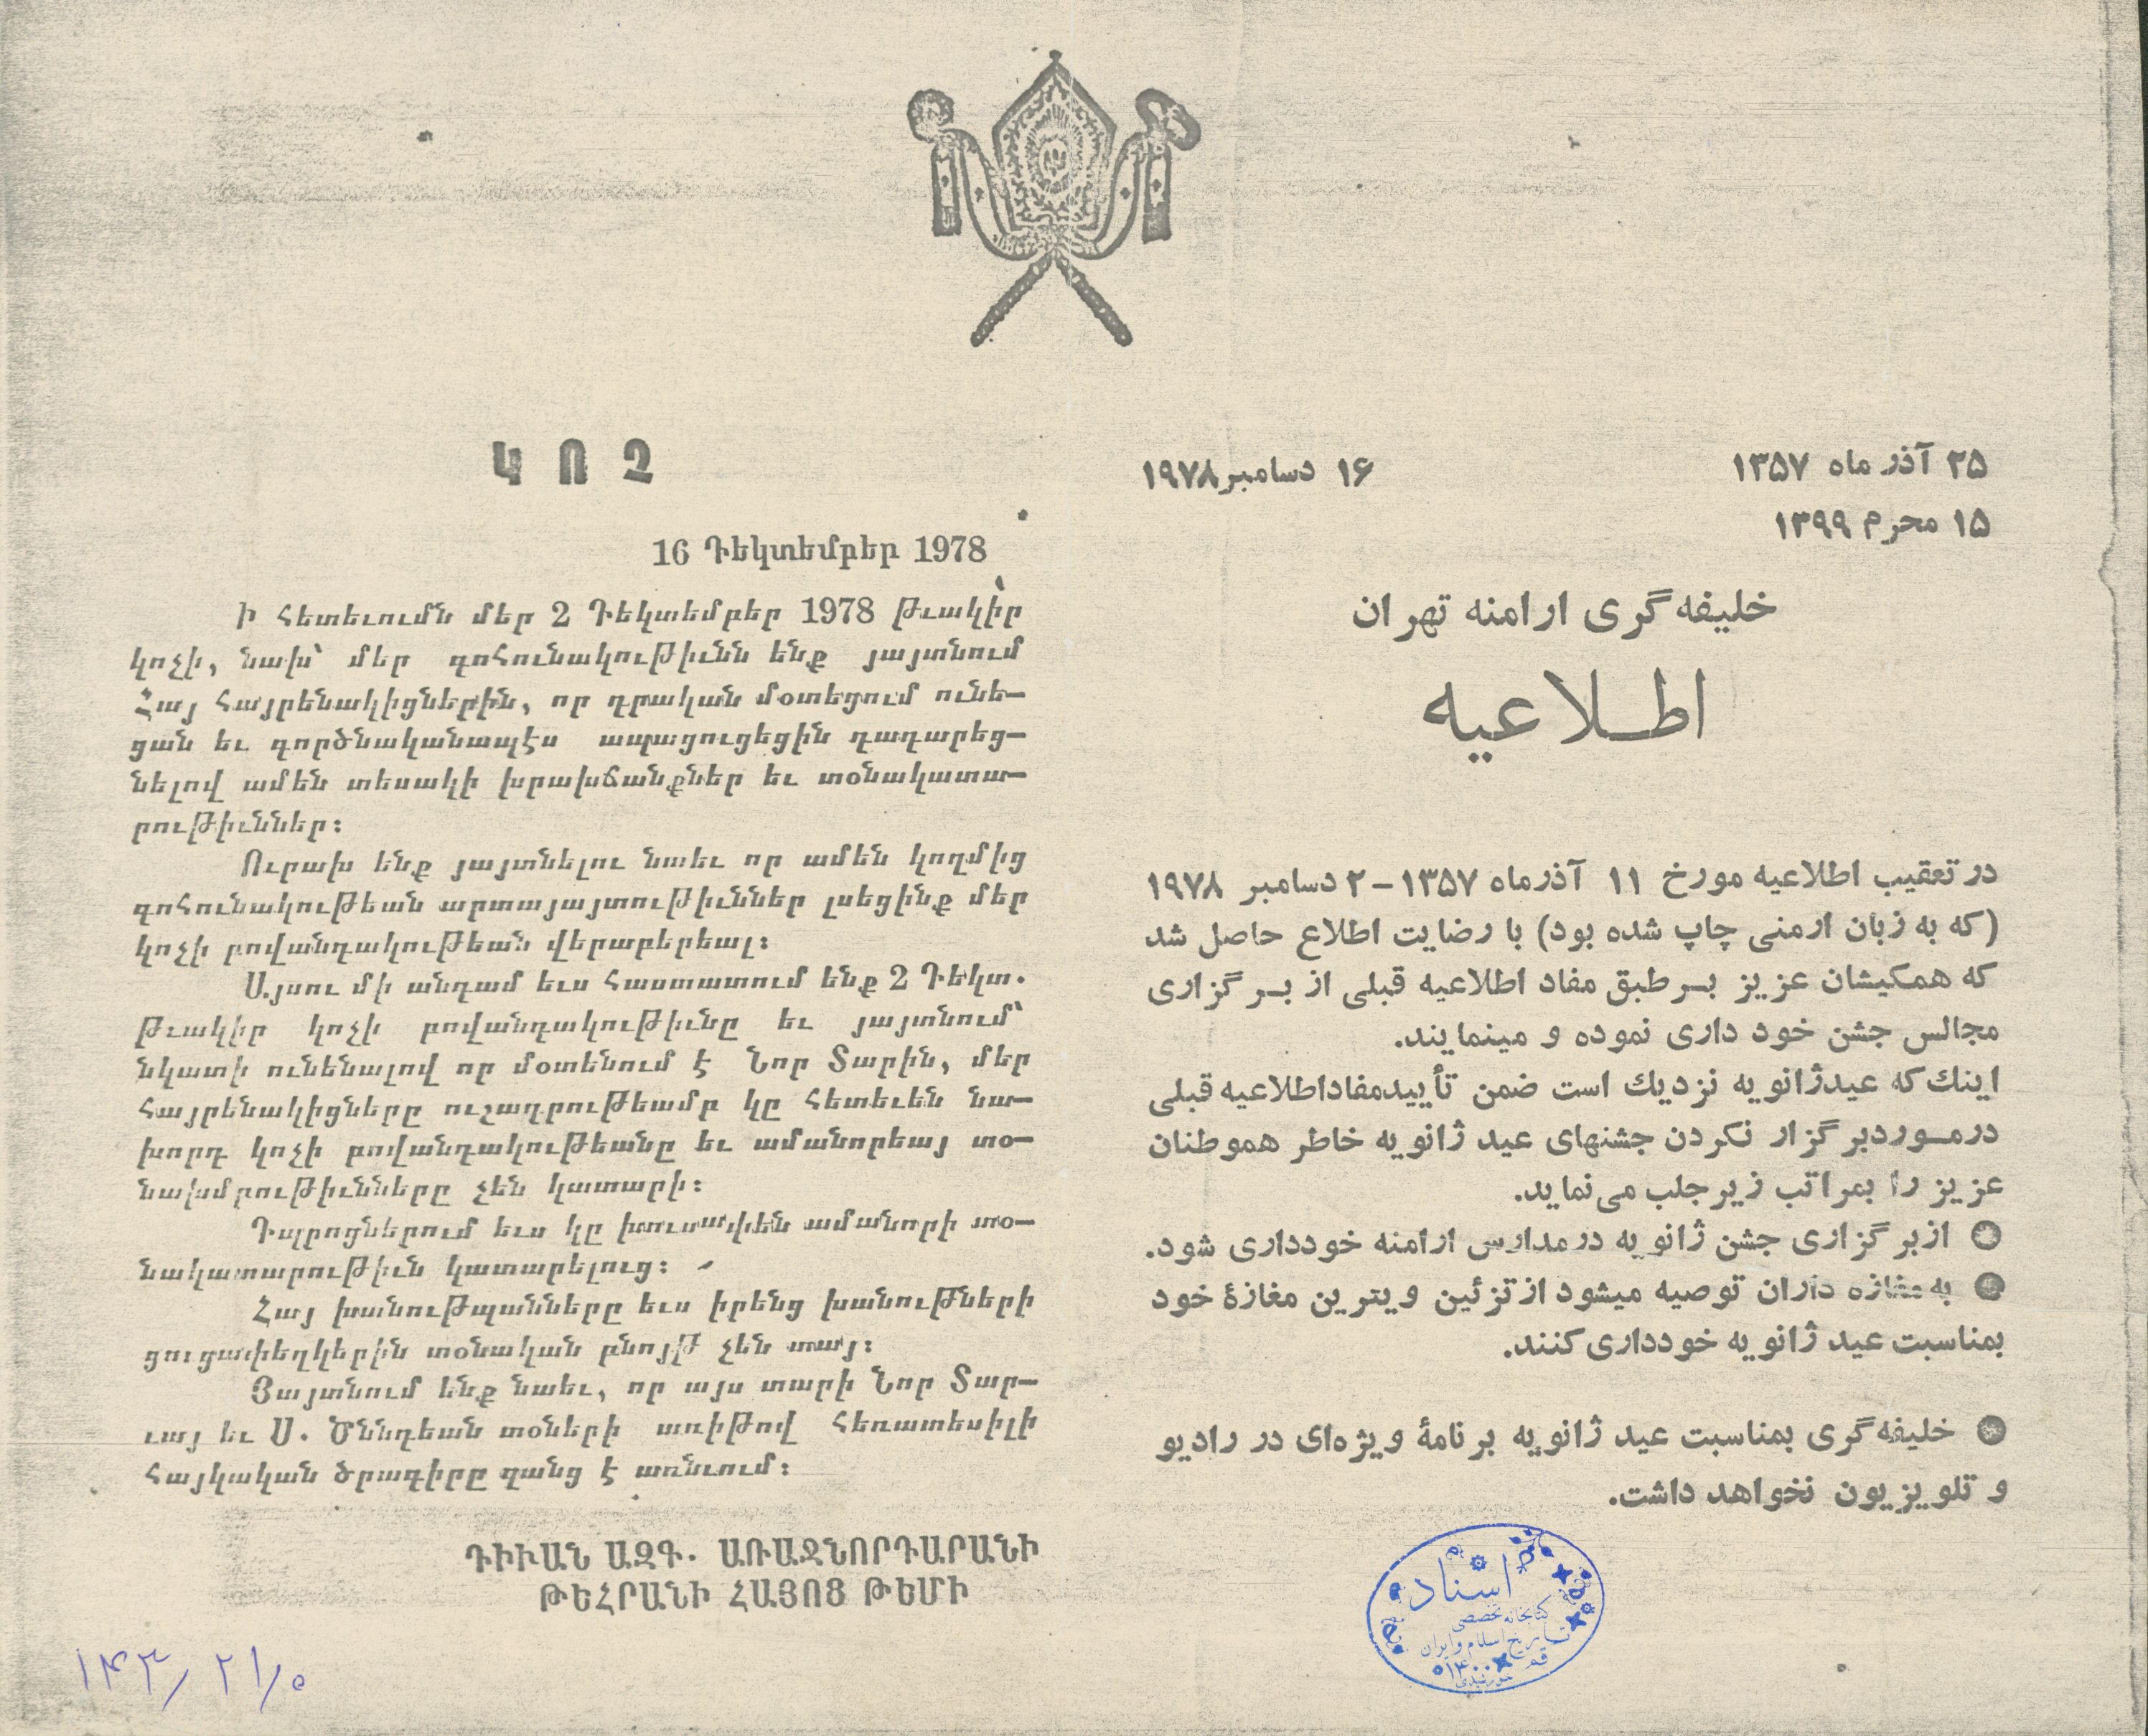 ԿՈՉ
16 Դեկտեմբեր 1978
Ի հետեւումն մեր 2 Դեկտեմբեր 1978 թւակիր
կոչի, նախ՝ մեր գոհունակութիւնն ենք յայտնում
Հայ հայրենակիցներին, որ դրական մօտեցում ունե–
ցան եւ գործնականապէս ապացուցեցին դադարեց–
նելով ամեն տեսակի խրախճանքներ եւ տօնակատա–
րութիւններ:
Ուրախ ենք յայտնելու նաեւ որ ամեն կողմից
գոհունակութեան արտայայտութիւններ լսեցինք մեր
կոչի բովանդակութեան վերաբերեալ:
Այսու մի անդամ եւս հաստատում ենք 2 Դեկտ.
թւակիր կոչի բովանդակութիւնը եւ յայտնում՝
նկատի ունենալով որ մօտենում է Նոր Տարին, մեր
հայրենակիցները ուշադրութեամբ կը հետեւեն նա–
խորդ կոչի բովանդակութեանը եւ ամանորեայ տօ–
նախմբութիւնները չեն կատարի:
Դպրոցներում եւս կը խուսափեն ամանորի տօ–
նակատարութիւն կատարելուց:
Հայ խանութպանները եւս իրենց խանութների
ցուցափեղկերին տօնական բնոյթ չեն տայ:
Յայտնում ենք նաեւ, որ այս տարի Նոր Տար–
ւայ եւ Ս. Ծննդեան տօների առիթով հեռատեսիլի
հայկական ծրագիրը զանց է առնւում:
ԴԻՒԱՆ ԱԶԳ. ԱՌԱՋՆՈՐԴԱՐԱՆԻ
ԹԵՀՐԱՆԻ ՀԱՅՈՑ ԹԵՄԻ
۱۴۳/۲۱/۰
۲۵ آذر ماه ۱۳۵۷
۱۶ دسامبر ۱۹۷۸
۱۵ محرم ۱۳۹۹
خلیفه‌گری ارامنه تهران
اطلاعیه
در تعقیب اطلاعیه مورخ ۱۱ آذرماه ۱۳۵۷–۲ دسامبر ۱۹۷۸
(که به زبان ارمنی چاپ شده بود) با رضایت اطلاع حاصل شد
که همکیشان عزیز بر طبق مفاد اطلاعیه قبلی از بر گزاری
مجالس جشن خود داری نموده و مینمایند.
اینك که عیدژانویه نزدیك است ضمن تأییدمفاداطلاعیه قبلی
درموردبر گزار نکردن جشنهای عید ژانویه خاطر هموطنان
عزیز را بمراتب زیر جلب می‌نماید.
● ازبر گزاری جشن ژانویه در مدارس ارامنه خودداری شود.
● به مغازه داران توصیه میشود از تزئین ویترین مغازهٔ خود
بمناسبت عید ژانویه خودداری کنند.
● خلیفه‌گری بمناسبت عید ژانویه برنامهٔ ویژه‌ای در رادیو
و تلویزیون نخواهد داشت.
اسناد
کتابخانه تخصصی
تاریخ اسلام و ایران
قم